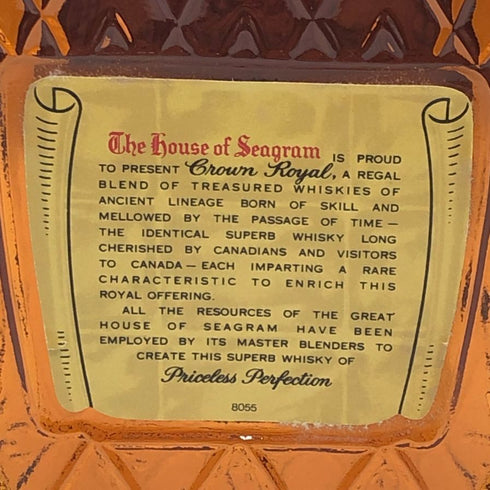 The House of Seagram IS PROUD
TO PRESENT Crown Royal, A REGAL
BLEND OF TREASURED WHISKIES OF
ANCIENT LINEAGE BORN OF SKILL AND
MELLOWED BY THE PASSAGE OF TIME —
THE IDENTICAL SUPERB WHISKY LONG
CHERISHED BY CANADIANS AND VISITORS
TO CANADA — EACH IMPARTING A RARE
CHARACTERISTIC TO ENRICH THIS
ROYAL OFFERING.
ALL THE RESOURCES OF THE GREAT
HOUSE OF SEAGRAM HAVE BEEN
EMPLOYED BY ITS MASTER BLENDERS TO
CREATE THIS SUPERB WHISKY OF
Priceless Perfection
8055